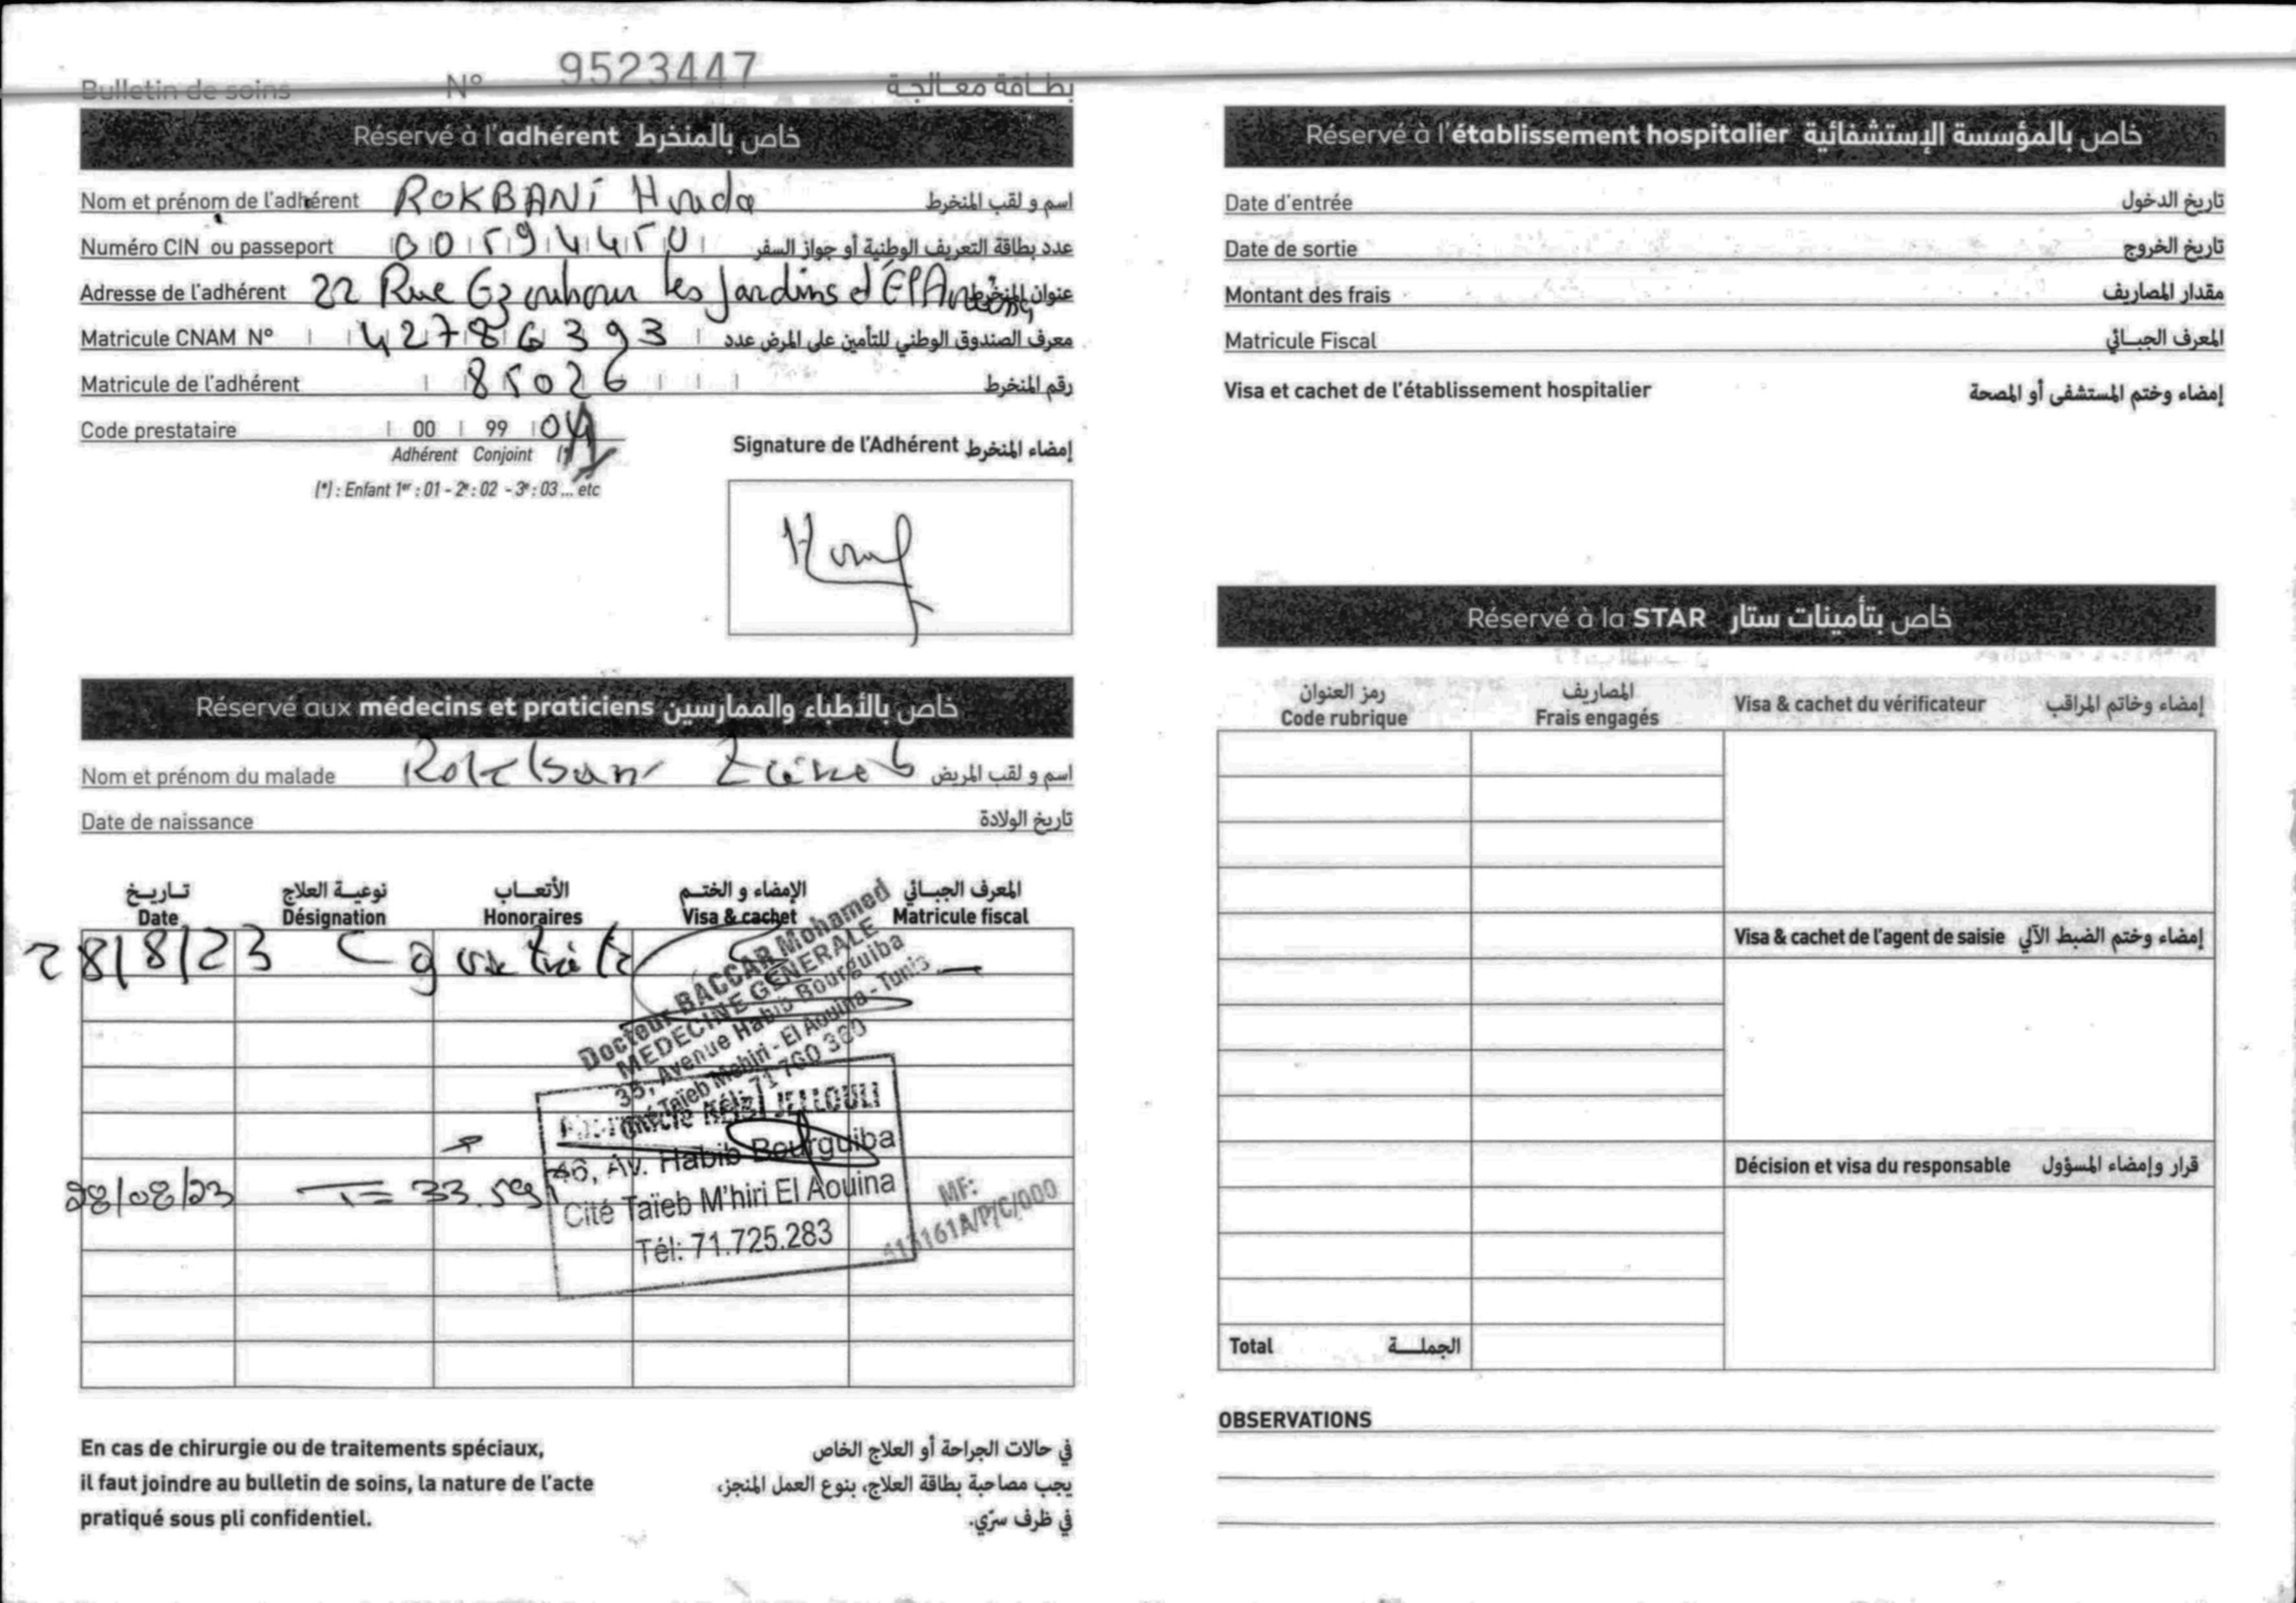 Bulletin de soins N° 9523447 بطاقة معالجة
Réservé à l'adhérent خاص بالمنخرط
Nom et prénom de l'adhérent ROKBANI Hnda اسم و لقب المنخرط
Numéro CIN ou passeport 00594450 عدد بطاقة التعريف الوطنية أو جواز السفر
Adresse de l'adhérent 22 Rue Ezzouhour les Jardins d'El عنوان المنخرط
Matricule CNAM N° 42786393 معرف الصندوق الوطني للتأمين على المرض عدد
Matricule de l'adhérent 85026 رقم المنخرط
Code prestataire 00 99 04
Adhérent Conjoint
(*) : Enfant 1er : 01 - 2e : 02 - 3e : 03 ... etc
Signature de l'Adhérent إمضاء المنخرط
Réservé aux médecins et praticiens خاص بالأطباء والممارسين
Nom et prénom du malade Rokbani Zeineb اسم و لقب المريض
Date de naissance تاريخ الولادة
تاريخ نوعية العلاج الأتعاب الإمضاء و الختم المعرف الجبائي
Date Désignation Honoraires Visa & cachet Matricule fiscal
28/8/23
Docteur BACCAR Mohamed
MEDECINE GENERALE
35, Avenue Habib Bourguiba
Taïeb Mehiri - El Aouina - Tunis
Tél: 71 760 360
JELLOULI
46, Av. Habib Bourguiba
28/08/23 T= 33.
Cité Taïeb M'hiri El Aouina
Tél: 71.725.283
MF:
161A/P/C/000
En cas de chirurgie ou de traitements spéciaux,
il faut joindre au bulletin de soins, la nature de l'acte
pratiqué sous pli confidentiel.
في حالات الجراحة أو العلاج الخاص
يجب مصاحبة بطاقة العلاج، بنوع العمل المنجز،
في ظرف سرّي.
Réservé à l'établissement hospitalier خاص بالمؤسسة الإستشفائية
Date d'entrée تاريخ الدخول
Date de sortie تاريخ الخروج
Montant des frais مقدار المصاريف
Matricule Fiscal المعرف الجبائي
Visa et cachet de l'établissement hospitalier إمضاء وختم المستشفى أو المصحة
Réservé à la STAR خاص بتأمينات ستار
رمز العنوان المصاريف
Code rubrique Frais engagés Visa & cachet du vérificateur إمضاء وخاتم المراقب
Visa & cachet de l'agent de saisie إمضاء وختم الضبط الآلي
Décision et visa du responsable قرار وإمضاء المسؤول
Total الجملة
OBSERVATIONS